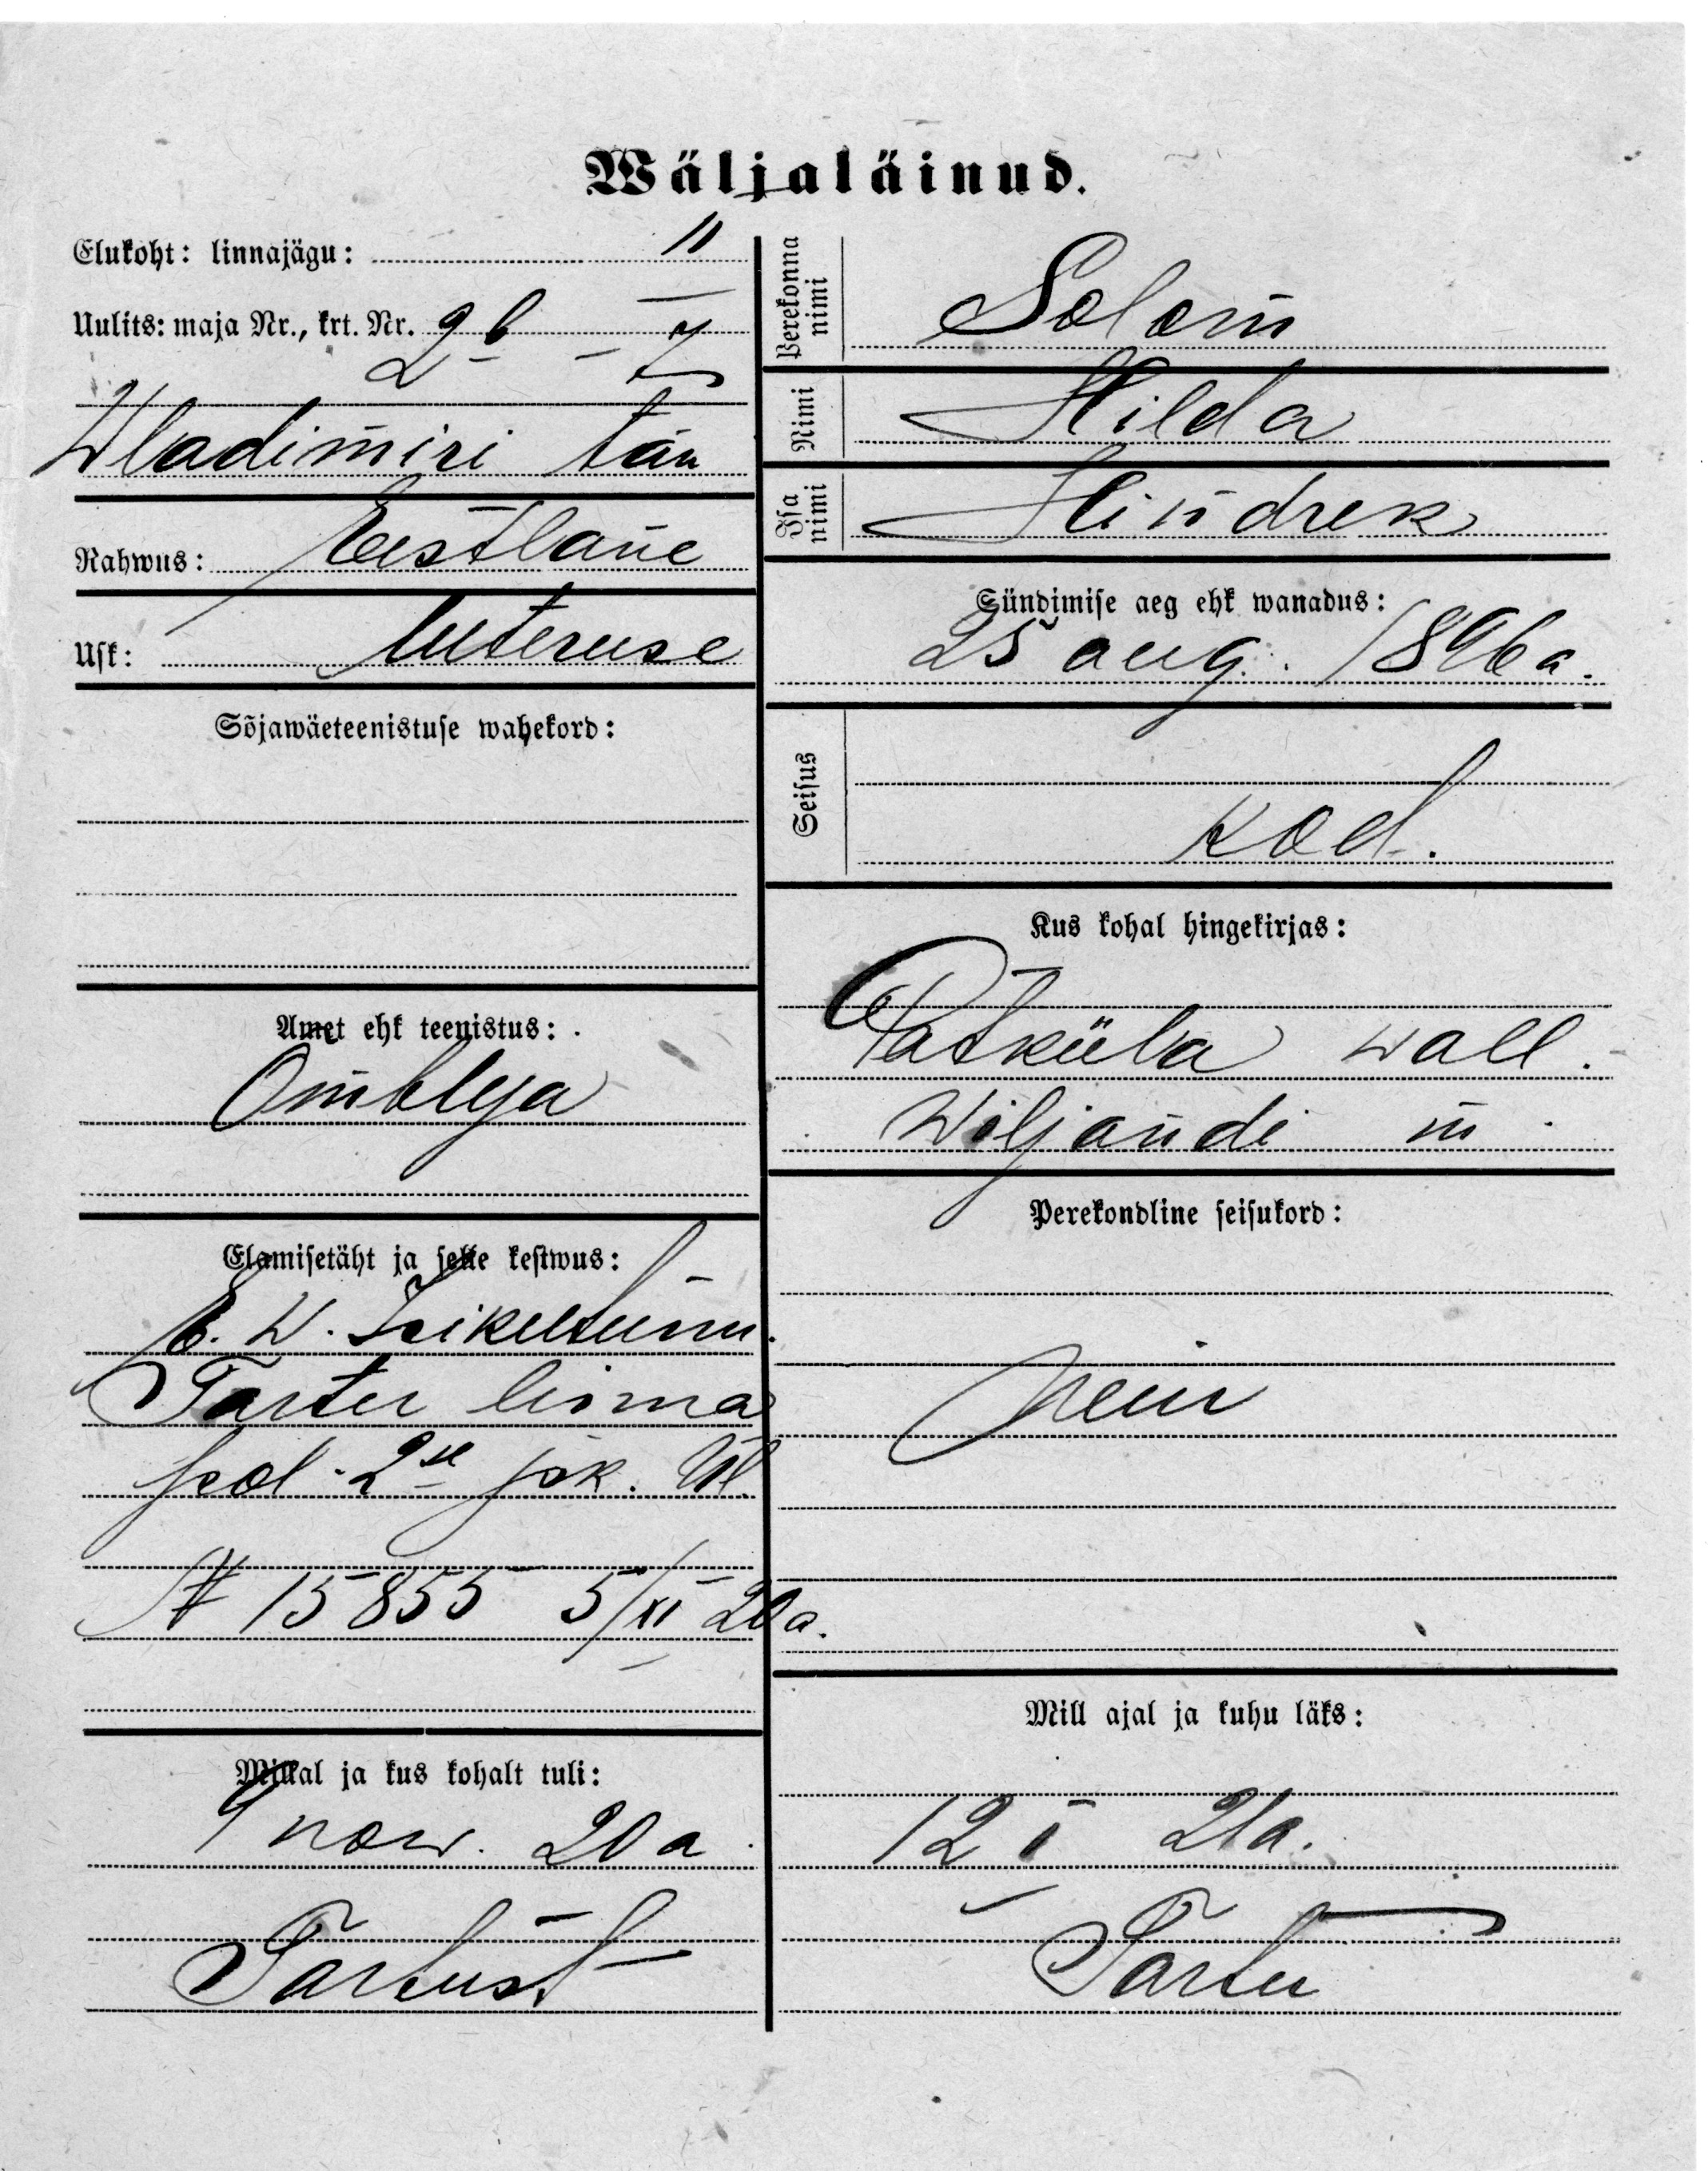 Wäljaläinud.
Elukoht: linnajägu: II
Uulits: maja Nr., krt. Nr. 26 - 7
Wladimiri tän
Rahwus: Eestlane
Usk: luteruse
Sõjawäeteenistuse wahekord:
Amet ehk teenistus:
Õmbleja
Elamisetäht ja selle kestwus:
E. W. Isikutunn.
Tartu linna
pol. 2se jsk. ül.
№ 15855 5/XI 20 a.
Millal ja kus kohalt tuli:
9 now. 20 a.
Tartust
Perekonna nimi
Solom
Nimi
Hilda
Isa nimi
Hindrek
Sündimise aeg ehk wanadus:
25 aug. 1896 a.
Seisus
kod.
Kus kohal hingekirjas:
Patküla wall.
Wiljandi m.
Perekondline seisukord:
neiu
Mill ajal ja kuhu läks:
12 I 21 a.
Tartu